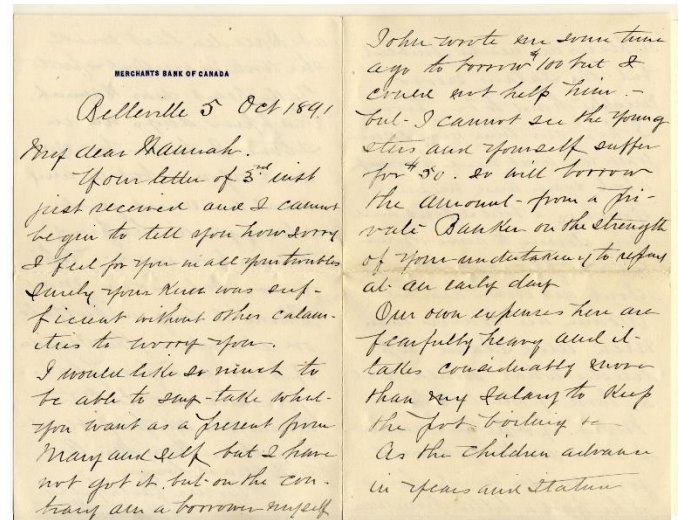 MERCHANTS BANK OF CANADA
Belleville 5 Oct 1891
My dear Hannah.
Your letter of 3rd inst
just received and I cannot
begin to tell you how sorry
I feel for you in all your troubles
Surely your Knee was suf-
ficient without other calam-
ities to worry you.
I would like so much to
be able to say - take what
you want as a present from
Mary and self but I have
not got it. but on the con-
trary am a borrower myself
John wrote me some time
ago to borrow $100 but I
could not help him. -
but I cannot see the young
sters and yourself suffer
for $50. so will borrow
the amount - from a pri-
vate Banker on the strength
of your undertaking to refund
at an early day
Our own expenses here are
fearfully heavy and it
takes considerably more
than my Salary to Keep
the pot boiling
As the children advance
in years and Stature